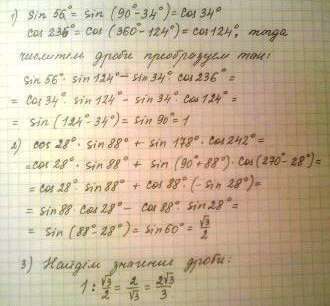 1) sin 56° = sin (90°-34°) = cos 34°
cos 236° = cos (360°-124°) = cos 124°, тогда
числитель дроби преобразуем так:
sin 56° · sin 124° - sin 34° · cos 236° =
= cos 34° · sin 124° - sin 34° · cos 124° =
= sin (124°-34°) = sin 90° = 1
2) cos 28° · sin 88° + sin 178° · cos 242° =
= cos 28° · sin 88° + sin (90°+88°) · cos (270°-28°) =
= cos 28° · sin 88° + cos 88° · (-sin 28°) =
= sin 88 · cos 28° - cos 88° · sin 28° =
= sin (88°-28°) = sin 60° = √3/2
3) Найдём значение дроби:
1 : √3/2 = 2/√3 = 2√3/3